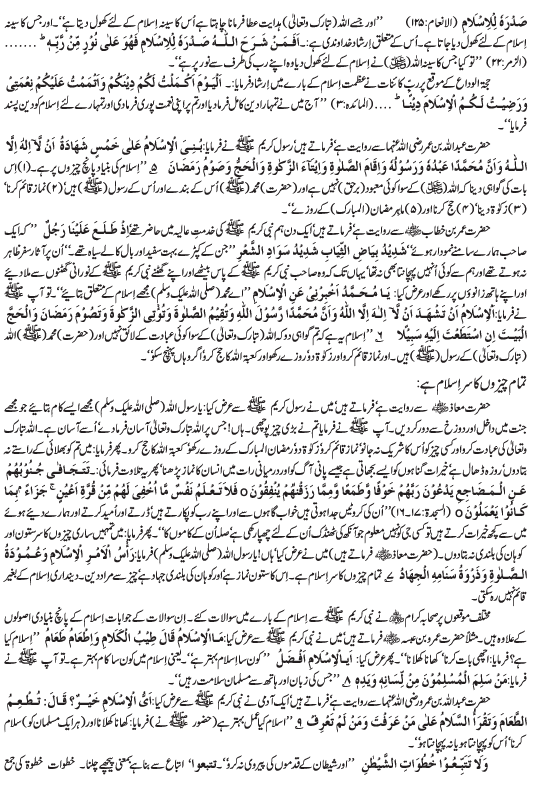 صَدْرَهٗ لِلْاِسْلَامِ (الانعام:۱۲۵) ’’اور جسے اللہ (تبارک وتعالیٰ) ہدایت عطا فرمانا چاہتا ہے اُس کا سینہ اِسلام کے لئے کھول دیتا ہے‘‘۔ اور جس کا سینہ
اِسلام کے لئے کھول دیا جاتا ہے۔ اُس کے متعلق اِرشاد خداوندی ہے:۔ اَفَمَنْ شَرَحَ اللّٰهُ صَدْرَهٗ لِلْاِسْلَامِ فَهُوَ عَلٰى نُوْرٍ مِّنْ رَّبِّهٖ
(الزمر:۲۲) ’’تو کیا جس کا سینہ اللہ نے اِسلام کے لئے کھول دیا وہ اپنے رب کی طرف سے نور پر ہے‘‘۔
حجۃ الوداع کے موقع پر ربِّ کائنات نے عظمت اِسلام کے بارے میں اِرشاد فرمایا۔ اَلْیَوْمَ اَكْمَلْتُ لَكُمْ دِیْنَكُمْ وَاَتْمَمْتُ عَلَیْكُمْ نِعْمَتِیْ
وَرَضِیْتُ لَكُمُ الْاِسْلَامَ دِیْنًا (المائدہ:۳) ’’آج میں نے تمہارا دین کامل فرما دیا اور تم پر اپنی نعمت پوری فرما دی اور تمہارے لئے اِسلام کو دین پسند
فرمایا‘‘۔
حضرت عبداللہ بن عمر رضی اللہ عنہما سے روایت ہے فرماتے ہیں‘ رسول کریم ﷺ نے فرمایا: بُنِیَ الْاِسْلَامُ عَلٰى خَمْسٍ شَهَادَةِ اَنْ لَّا اِلٰهَ اِلَّا
اللّٰهُ وَاَنَّ مُحَمَّدًا عَبْدُهٗ وَرَسُوْلُهٗ وَاِقَامِ الصَّلٰوةِ وَاِیْتَآءِ الزَّكٰوةِ وَالْحَجِّ وَصَوْمِ رَمَضَانَ ۵ ’’اِسلام کی بنیاد پانچ چیزوں پر ہے۔ (۱) اِس
بات کی گواہی دینا کہ اللہ کے سوا کوئی معبود (برحق) نہیں ہے اور (حضرت) محمد اُس کے بندے اور اُس کے رسول ہیں (۲) نماز قائم کرنا‘
(۳) زکوٰۃ دینا‘ (۴) حج کرنا اور (۵) ماہِ رمضان (المبارک) کے روزے‘‘۔
حضرت عمر بن خطاب سے روایت ہے فرماتے ہیں‘ ایک دن ہم نبی کریم ﷺ کی خدمتِ عالیہ میں حاضر تھے اِذْ طَلَعَ عَلَیْنَا رَجُلٌ ’’کہ ایک
صاحب ہمارے سامنے نمودار ہوئے‘‘ شَدِیْدُ بِیَاضِ الثِّیَابِ شَدِیْدُ سَوَادِ الشَّعْرِ ’’جن کے کپڑے بہت سفید اور بال کالے سیاہ تھے‘‘۔ اُن پر آثارِ سفر ظاہر
نہ ہوتے تھے اور ہم سے کوئی اُنہیں پہچانتا بھی نہ تھا‘ یہاں تک کہ وہ صاحب نبی کریم ﷺ کے پاس بیٹھے اور اپنے گھٹنے نبی کریم ﷺ کے نورانی گھٹنوں سے ملا دیئے
اور اپنے ہاتھ زانوؤں پر رکھے اور عرض کیا: یَا مُحَمَّدُ اَخْبِرْنِیْ عَنِ الْاِسْلَامِ ’’اے محمد (صلی اللہ علیک وسلم) مجھے اِسلام کے متعلق بتائیے‘‘۔ تو آپ ﷺ
نے فرمایا: اَلْاِسْلَامُ اَنْ تَشْهَدَ اَنْ لَّا اِلٰهَ اِلَّا اللّٰهُ وَاَنَّ مُحَمَّدًا رَّسُوْلُ اللّٰهِ وَتُقِیْمَ الصَّلٰوةَ وَتُؤْتِیَ الزَّكٰوةَ وَتَصُوْمَ رَمَضَانَ وَتَحُجَّ
الْبَیْتَ اِنِ اسْتَطَعْتَ اِلَیْهِ سَبِیْلًا ۶ ’’اِسلام یہ ہے کہ تم گواہی دو کہ اللہ (تبارک وتعالیٰ) کے سوا کوئی عبادت کے لائق نہیں اور (حضرت) محمد اللہ
(تبارک وتعالیٰ) کے رسول ہیں۔ اور نماز قائم کرو اور زکوٰۃ دو رمضان کے روزے رکھو اور کعبۃ اللہ کا حج کرو اگر وہاں پہنچ سکو‘‘۔
تمام چیزوں کا سر اِسلام ہے:
حضرت معاذ سے روایت ہے‘ فرماتے ہیں‘ میں نے رسول کریم ﷺ سے عرض کیا: یا رسول اللہ (صلی اللہ علیک وسلم) مجھے ایسے کام بتائیے جو مجھے
جنت میں داخل اور دوزخ سے دور کر دیں۔ آپ نے فرمایا تم نے بڑی چیز پوچھی۔ ہاں! جس پر اللہ تبارک وتعالیٰ آسان فرما دے اُسے آسان ہے۔ اللہ تبارک
وتعالیٰ کی عبادت کرو اور کسی چیز کو اُس کا شریک نہ جانو‘ نماز قائم کرو‘ زکوٰۃ دو‘ رمضان المبارک کے روزے رکھو‘ کعبۃ اللہ کا حج کرو۔ پھر فرمایا: میں تم کو بھلائی کے راستے نہ
بتا دوں‘ روزہ ڈھال ہے‘ خیرات گناہوں کو ایسے بجھاتی ہے جیسے پانی آگ کو اور درمیانی رات میں انسان کا نماز پڑھنا‘ پھر یہ تلاوت فرمائی: تَتَجَافٰى جُنُوْبُهُمْ
عَنِ الْمَضَاجِعِ یَدْعُوْنَ رَبَّهُمْ خَوْفًا وَّطَمَعًا وَّمِمَّا رَزَقْنٰهُمْ یُنْفِقُوْنَ o فَلَا تَعْلَمُ نَفْسٌ مَّا اُخْفِیَ لَهُمْ مِّنْ قُرَّةِ اَعْیُنٍ جَزَآءًۢ بِمَا
كَانُوْا یَعْمَلُوْنَ o (السجدۃ:۱۶۔۱۷) ’’اُن کی کروٹیں جدا ہوتی ہیں خواب گاہوں سے اور اپنے رب کو پکارتے ہیں‘ ڈرتے اور اُمید کرتے اور ہمارے دیئے ہوئے
میں سے کچھ خیرات کرتے ہیں تو کسی جی کو نہیں معلوم جو آنکھ کی ٹھنڈک اُن کے لئے چھپا رکھی ہے صلہ اُن کے کاموں کا‘‘۔ پھر فرمایا: میں تمہیں ساری چیزوں کا سر‘ ستون اور
کوہان کی بلندی نہ بتا دوں۔ (حضرت معاذ فرماتے ہیں) میں نے عرض کیا‘ ہاں! یا رسول اللہ (صلی اللہ علیک وسلم) فرمایا: رَأْسُ الْاَمْرِ الْاِسْلَامُ وَعُمُوْدُهُ
الصَّلٰوةُ وَذِرْوَةُ سَنَامِهِ الْجِهَادُ ۷ تمام چیزوں کا سر اِسلام ہے۔ اِس کا ستون نماز ہے اور کوہان کی بلندی جہاد ہے چیز سے مراد دین۔ دینداری اِسلام کے بغیر
قائم نہیں رہ سکتی۔
مختلف موقعوں پر صحابہ کرام نے نبی کریم ﷺ سے اِسلام کے بارے میں سوالات کئے۔ اِن سوالات کے جوابات اِسلام کے پانچ بنیادی اصولوں
کے علاوہ ہیں۔ مثلاً حضرت عمرو بن عبسہ فرماتے ہیں‘ میں نے نبی کریم ﷺ سے عرض کیا: مَا الْاِسْلَامُ قَالَ طِیْبُ الْكَلَامِ وَاِطْعَامُ طَعَامٍ ’’اِسلام کیا
ہے؟ فرمایا: اچھی بات کرنا‘ کھانا کھلانا‘‘۔ پھر عرض کیا: اَیُّ الْاِسْلَامِ اَفْضَلُ ’’کون سا اِسلام بہتر ہے‘‘۔ یعنی اِسلام میں کون سا کام بہتر ہے۔ تو آپ ﷺ نے
فرمایا: مَنْ سَلِمَ الْمُسْلِمُوْنَ مِنْ لِّسَانِهٖ وَیَدِهٖ ۸ ’’جس کی زبان اور ہاتھ سے مسلمان سلامت رہیں‘‘۔
حضرت عبداللہ بن عمرو رضی اللہ عنہما سے روایت ہے‘ فرماتے ہیں‘ ایک آدمی نے نبی کریم ﷺ سے عرض کیا: اَیُّ الْاِسْلَامِ خَیْرٌ؟ قَالَ: تُطْعِمُ
الطَّعَامَ وَتَقْرَأُ السَّلَامَ عَلٰى مَنْ عَرَفْتَ وَمَنْ لَّمْ تَعْرِفْ ۹ ’’اِسلام کا کیا عمل بہتر ہے (حضور ﷺ نے) فرمایا: کھانا کھلانا اور (ہر ایک مسلمان کو) سلام
کرنا‘ اُس کو پہچانتا ہو یا نہ پہچانتا ہو‘‘۔
وَلَا تَتَّبِعُوْا خُطُوَاتِ الشَّیْطٰنِ ’’اور شیطان کے قدموں کی پیروی نہ کرو‘‘۔ تتبعوا‘ اتباع سے بنا ہے بمعنی پیچھے چلنا۔ خطوات خطوۃ کی جمع